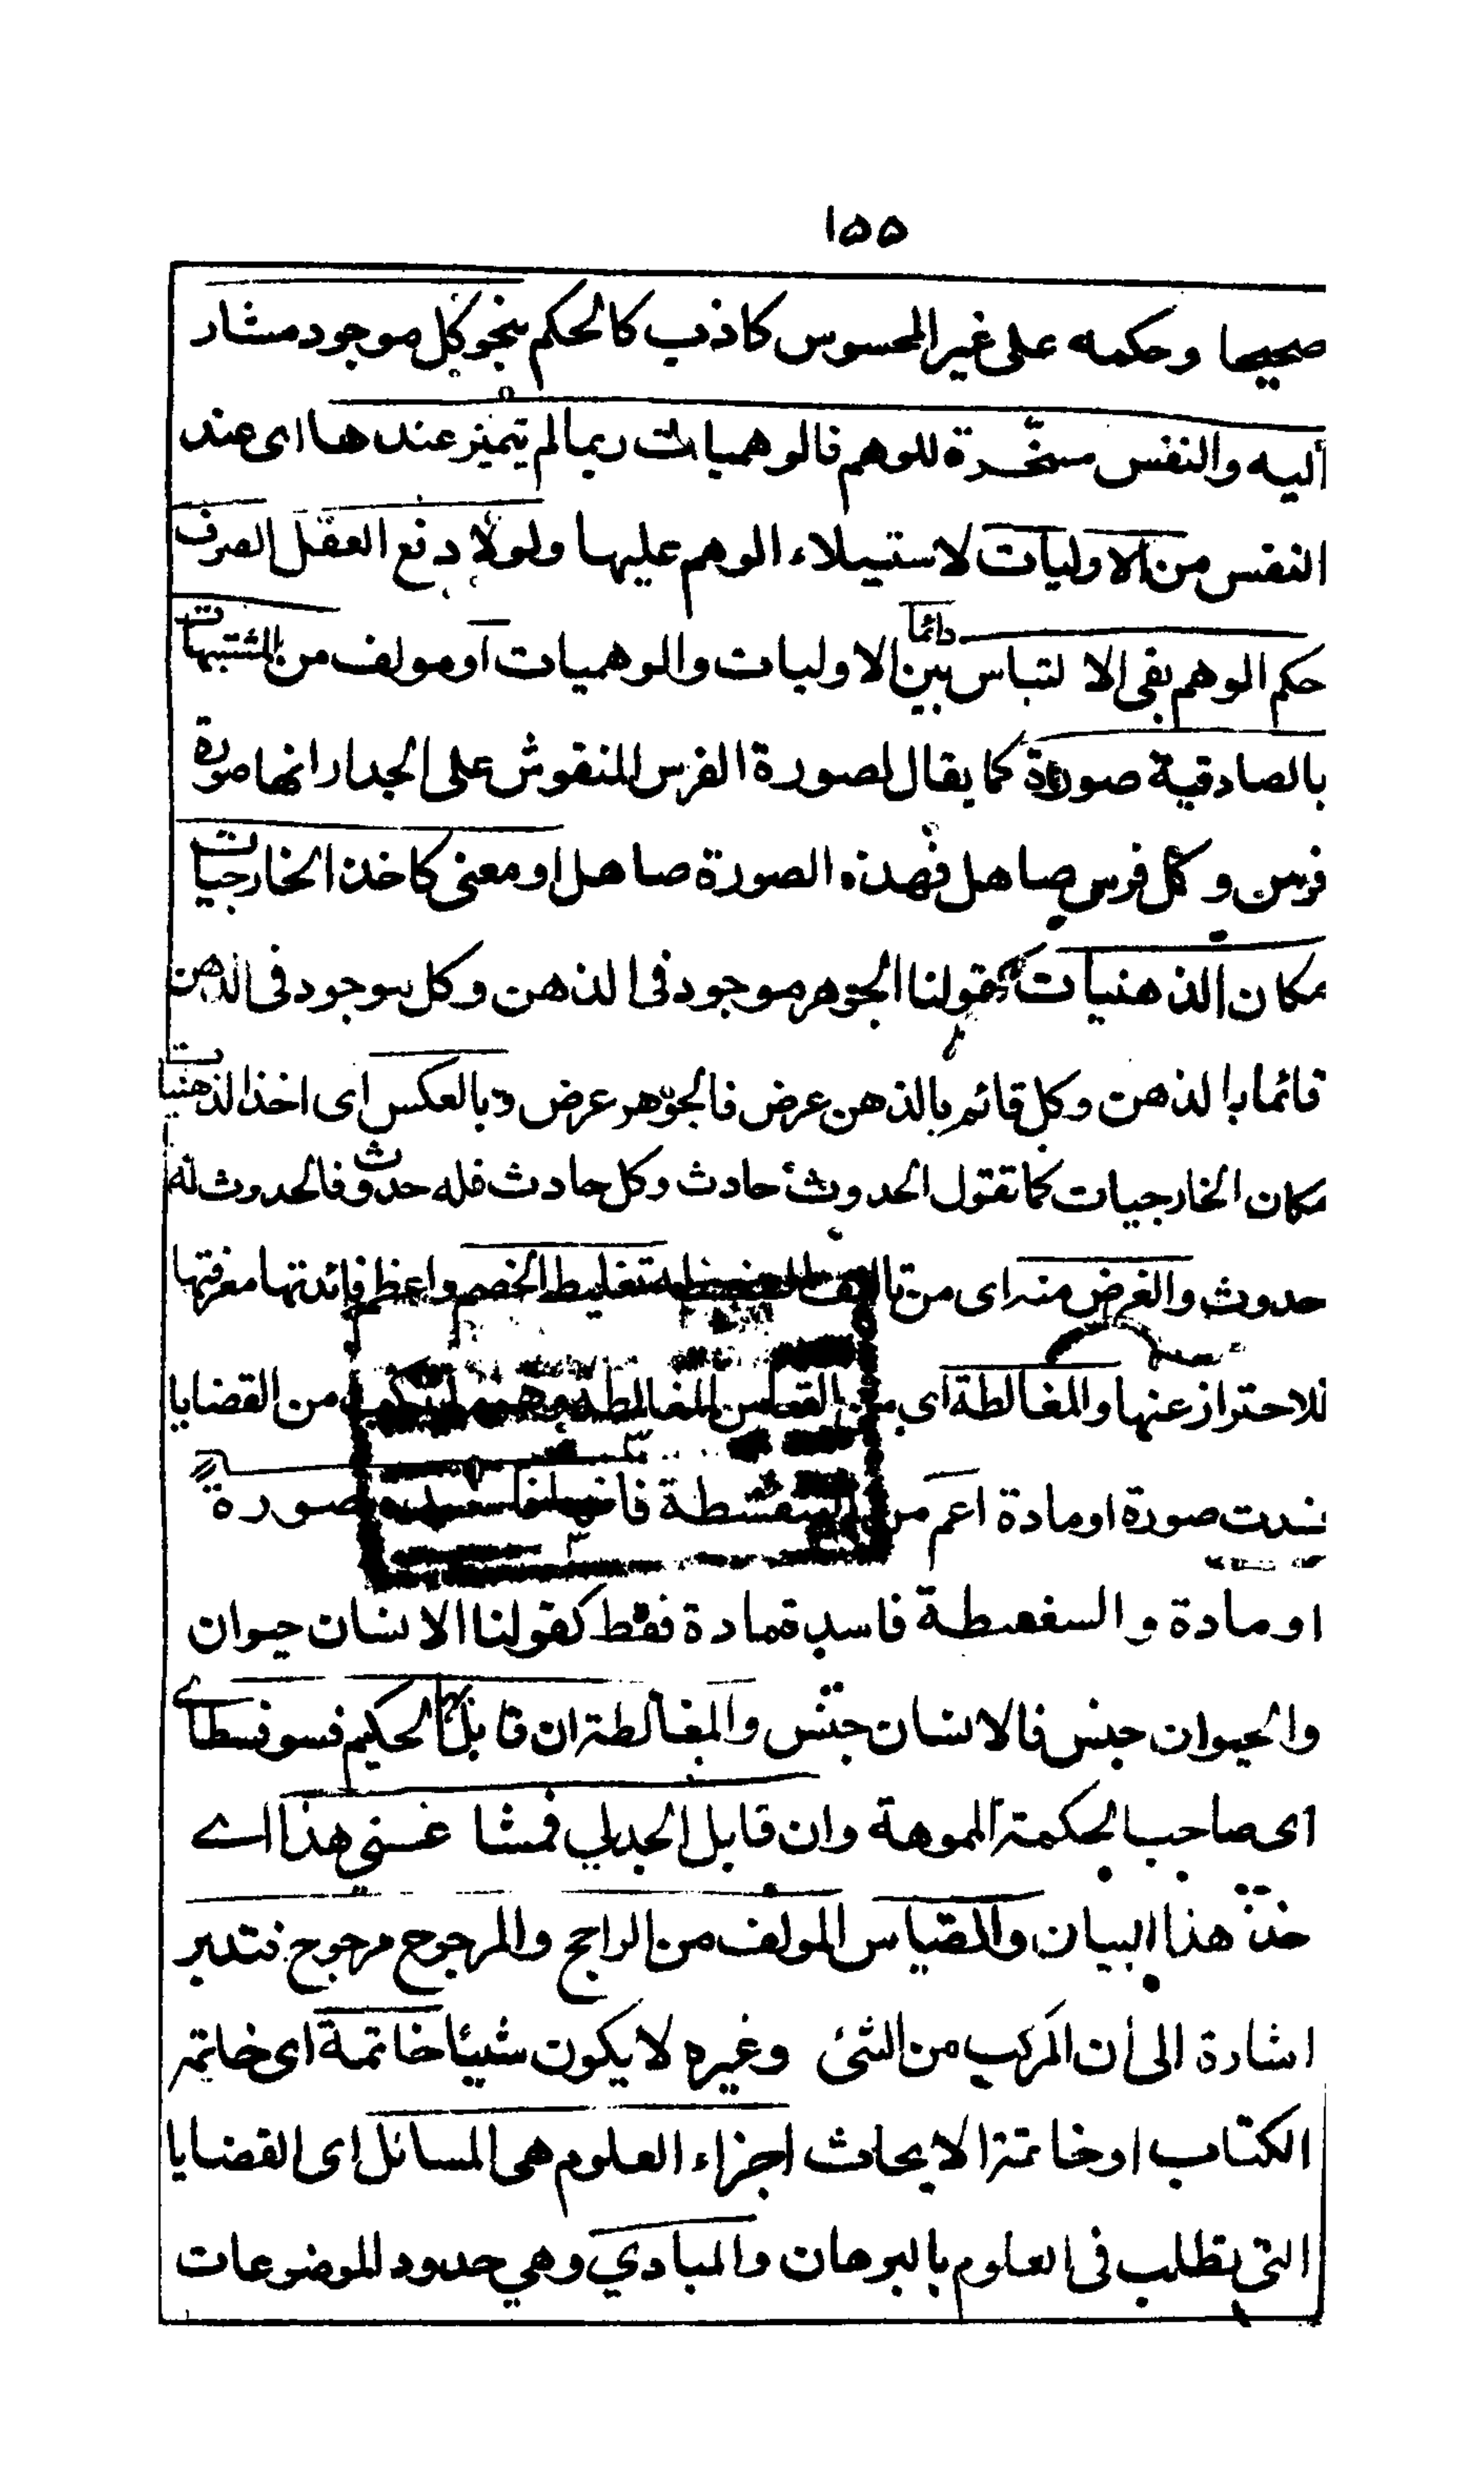 ١٥٥
صحيحا وحكمه على غير المحسوس كاذب كالحكم بنحو كل موجود مشار
اليه والنفس مسخّرة للوهم فالوهميات ربما لم يتميز عندها اى عند
النفس من الاوليات لاستيلاء الوهم عليها ولولا دفع العقل الصرف
حكم الوهم بقى الالتباس بين الاوليات والوهميات دائما او مولف من المشتبهات
بالصادقية صورة كما يقال لصورة الفرس المنقوش على الجدار انها صورة
فرس وكل فرس صاهل فهذه الصورة صاهل او معنى كاخذ الخارجيات
مكان الذهنيات كقولنا الجوهر موجود فى الذهن وكل موجود فى الذهن
قائما بالذهن وكل قائم بالذهن عرض فالجوهر عرض وبالعكس اى اخذ الذهنيات
مكان الخارجيات كما تقول الحدوث حادث وكل حادث فله حدوث فالحدوث له
حدوث والغرض منه اى من تاليف تغليط الخصم واعظم فائدتها معرفتها
للاحتراز عنها والمغالطة اى من القياس المغالطة من القضايا
فسدت صورة او مادة اعم من صورة
او مادة والسفسطة فاسدة مادة فقط كقولنا الانسان حيوان
والحيوان جنس فالانسان جنس والمغالطة ان قابل بها الحكيم فسوفسطاے
اى صاحب الحكمة المموهة وان قابل الجدلي فمشاغبي هذا اے
خذ هذا البيان والقياس المولف من الراجح والمرجوح مرجوح فتدبر
اشارة الى أن المركب من الشئ وغيره لا يكون شيئا خاتمة اى خاتمة
الكتاب او خاتمة الابحاث اجزاء العلوم هى المسائل اى القضايا
التى تطلب فى العلوم بالبرهان والمبادي وهي حدود الموضوعات